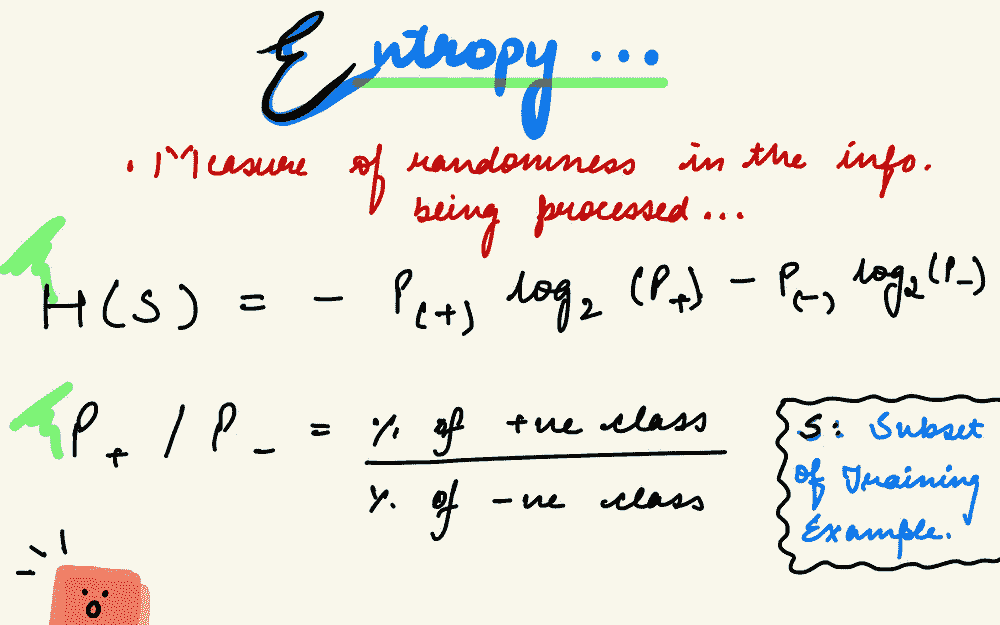 Entropy ...
. Measure of randomness in the info.
being processed...
H(S) = - P(+) log₂ (P+) - P(-) log₂(P-)
P+ / P- = % of +ve class
% of -ve class
S: Subset
of Training
Example.